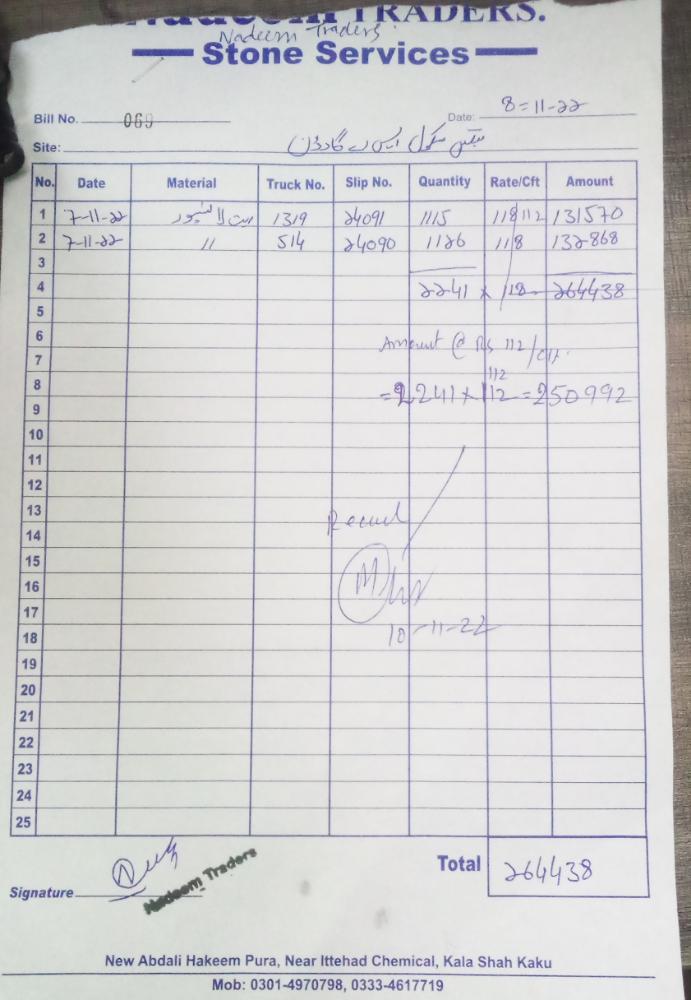 Nadeem TRADERS.
Nadeem Traders
Stone Services
Bill No. 069
Date: 8-11-22
Site: سکول ایس اے گارڈن
No. Date Material Truck No. Slip No. Quantity Rate/Cft Amount
1 7-11-22 1319 24091 1115 118 112 131570
2 7-11-22 // 514 24090 1126 118 132868
3
4 2241 x 118 264438
5
6
Amount @ Rs 112/cft.
7
112
8 = 2241 x 112 = 250992
9
10
11
12
13
Received
14
15
16
17
10-11-22
18
19
20
21
22
23
24
25
Total 264438
Signature
Nadeem Traders
New Abdali Hakeem Pura, Near Ittehad Chemical, Kala Shah Kaku
Mob: 0301-4970798, 0333-4617719